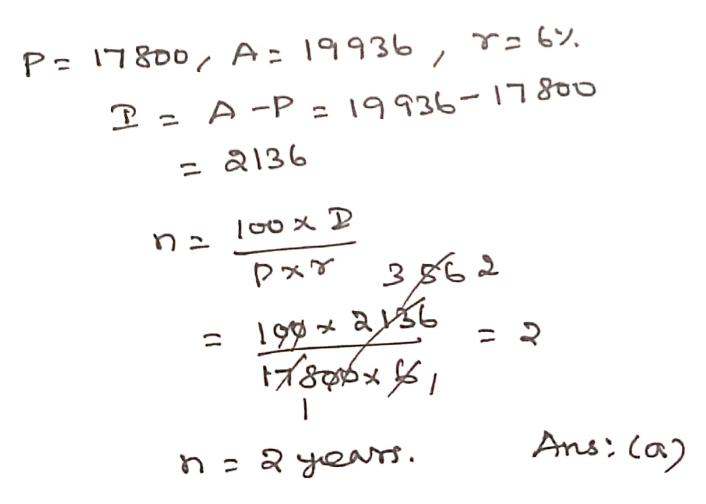 P = 17800, A = 19936, r = 6%.
I = A - P = 19936 - 17800
= 2136
n = 100 x I / P x r
3 56 2
= 100 x 2136 / 17800 x 6 = 2
1
1
n = 2 years. Ans: (a)